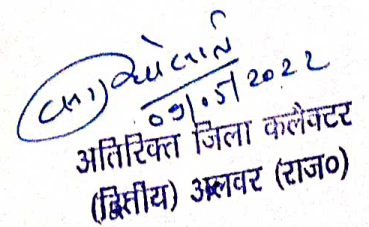 09/05/2022
अतिरिक्त जिला कलेक्टर
(द्वितीय) अलवर (राज०)